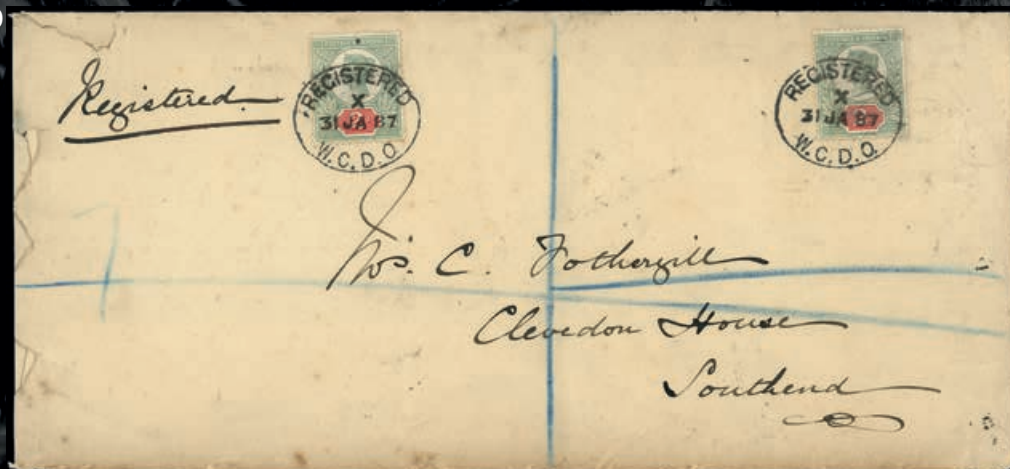 Registered
REGISTERED
X
31 JA 87
W.C.D.O.
REGISTERED
X
31 JA 87
W.C.D.O.
C. Fothergill
Clevedon House
Southend